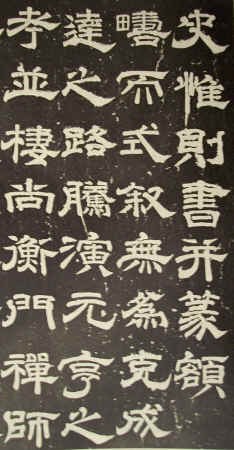 史惟則書并篆額
疇不式叙無為克成
達之路騰演元亨之
孝並棲尚衡門禪師